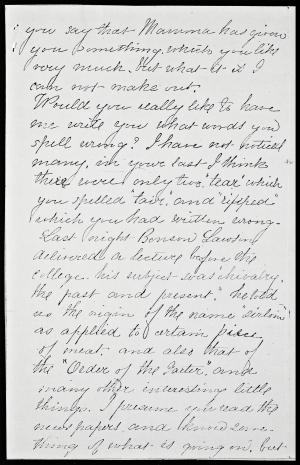 you say that Mamma has given
you something which you like
very much. but what it is I
can not make out.
Would you really like to have
me write you what words you
spell wrong? I have not noticed
many, in your last I think
there were only two, "tear", which
you spelled "tair", and "ripped"
which you had written wrong.
Last night Benson
delivered a lecture before the
college. his subject was "chivalry,
the past and present." he told
us the origin of the name "sirloin"
as applied to certain piece
of meat. and also that of
the "Order of the Garter", and
many other interesting little
things. I presume you read the
newspapers, and know some-
thing of what is going on, but